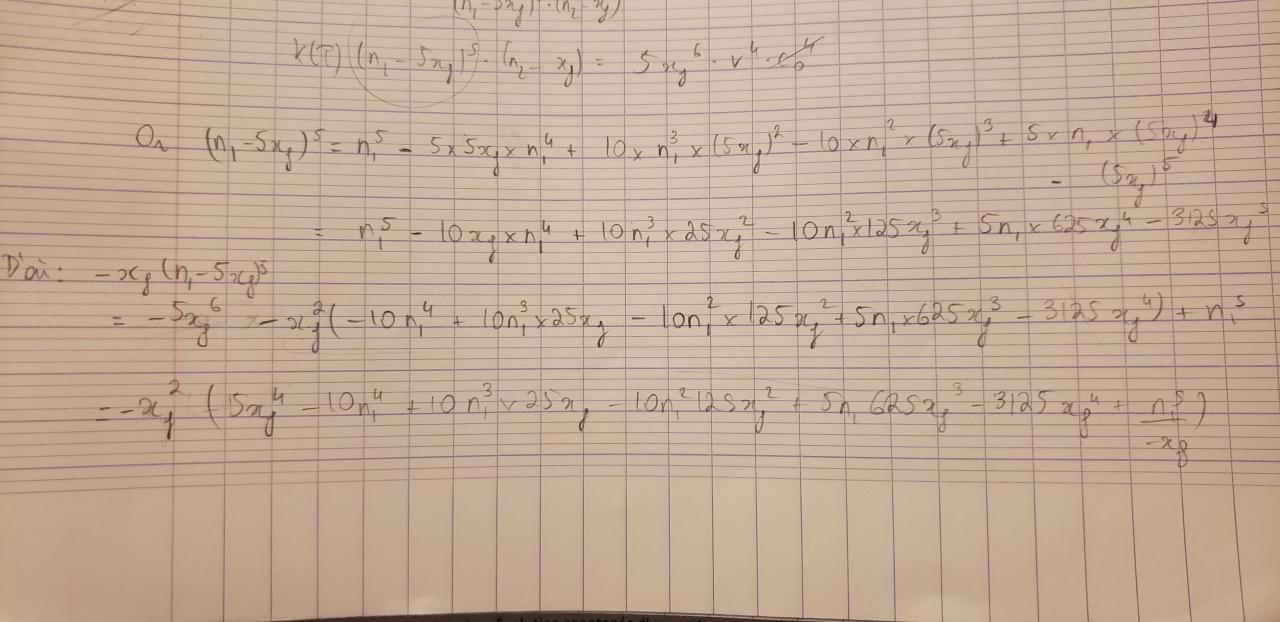 (n₁ - 5x_f)⁵ · (n₂ - x_f)
K(T) (n₁ - 5x_f)⁵ · (n₂ - x_f) = 5x_f⁶ · V⁴ · c₀⁴
Or (n₁ - 5x_f)⁵ = n₁⁵ - 5×5x_f × n₁⁴ + 10 × n₁³ × (5x_f)² - 10 × n₁² × (5x_f)³ + 5 × n₁ × (5x_f)⁴
- (5x_f)⁵
= n₁⁵ - 10x_f × n₁⁴ + 10n₁³ × 25x_f² - 10n₁² × 125x_f³ + 5n₁ × 625x_f⁴ - 3125x_f⁵
D'où : -x_f (n₁ - 5x_f)⁵
= -5x_f⁶ - x_f² (-10n₁⁴ + 10n₁³ × 25x_f - 10n₁² × 125x_f² + 5n₁ × 625x_f³ - 3125x_f⁴) + n₁⁵
= -x_f² (5x_f⁴ - 10n₁⁴ + 10n₁³ × 25x_f - 10n₁² 125x_f² + 5n₁ 625x_f³ - 3125x_f⁴ + n₁⁵/-x_f)